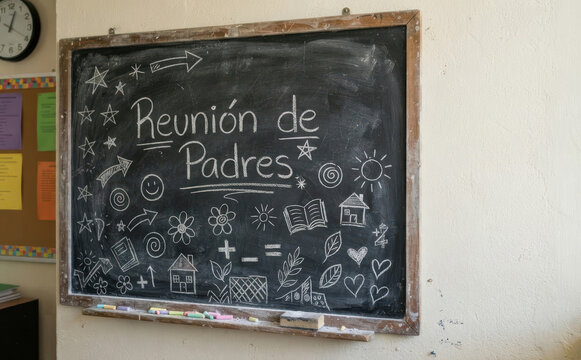 Reunión de
Padres